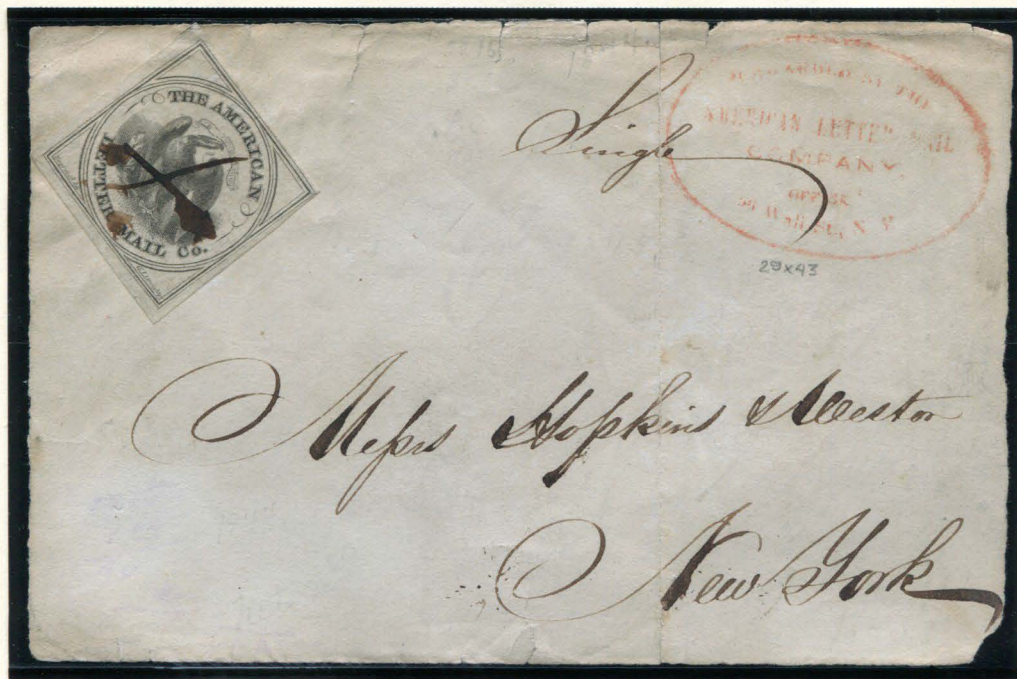 THE AMERICAN
LETTER MAIL Co.
Single
FORWARDED BY THE
AMERICAN LETTER MAIL
COMPANY,
OFFICE
Wall St., N. Y.
29x43
Messrs Hopkins & Weston
New York